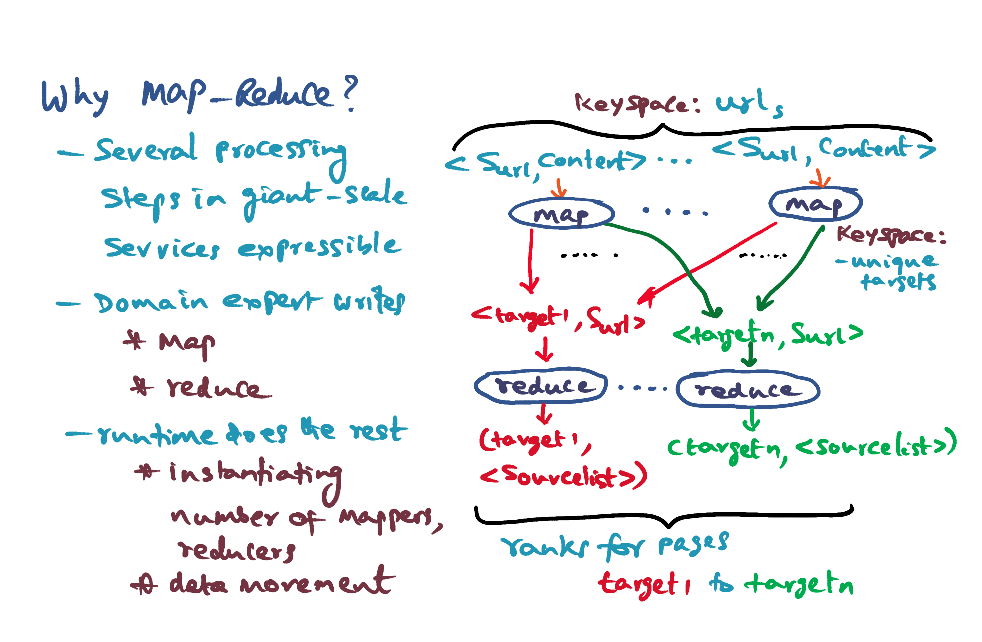 Why Map-Reduce?
- Several processing
Steps in giant-scale
Services expressible
- Domain expert writes
* Map
* reduce
- runtime does the rest
* instantiating
number of mappers,
reducers
* data movement
Keyspace: urls
<Surl, Content> ... <Surl, Content>
map ..... map
Keyspace:
- unique
targets
<target1, Surl>
<targetn, Surl>
reduce ..... reduce
(target1,
<Sourcelist>)
(targetn, <sourcelist>)
ranks for pages
target1 to targetn